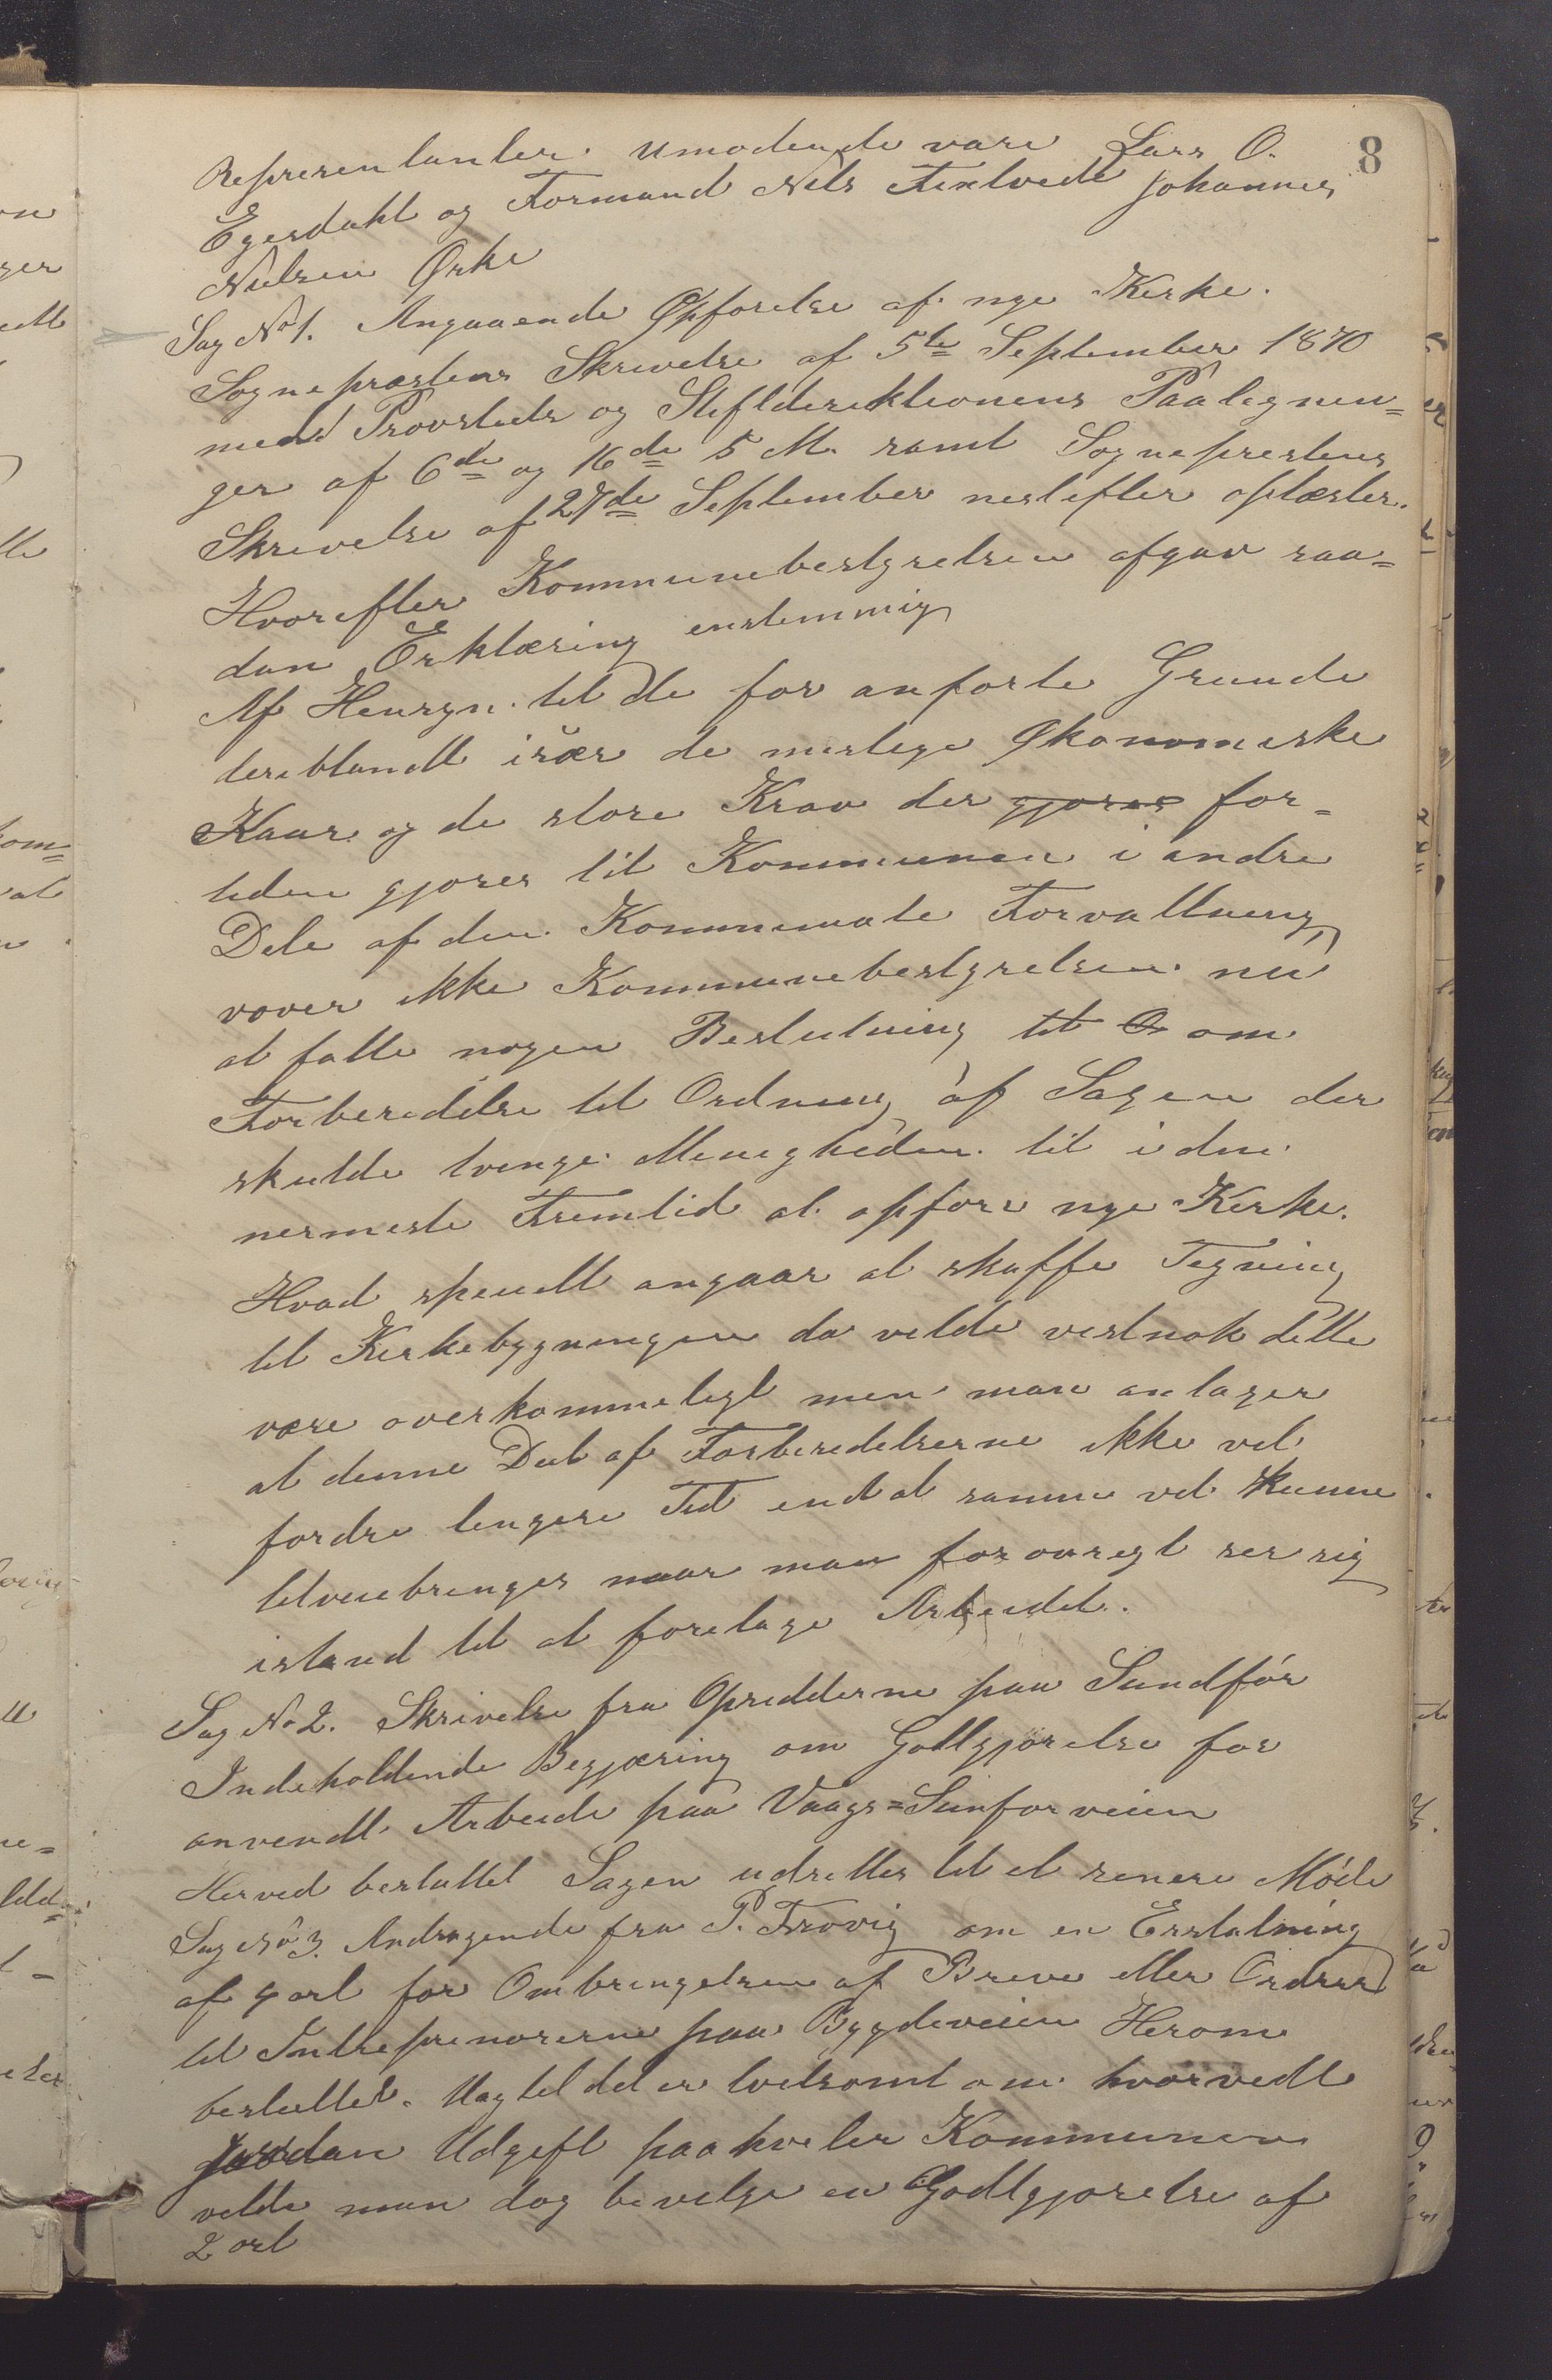 8
Representanter. Umødende vare Lars O.
Egesdahl og Formand Nils Fixtvedt Johannes
Nielsen Ørke
Sag No 1. Angaaende Opførelse af nye Kirke.
Sogneprestens Skrivelse af 5te September 1870
med Provstets og Stiftdirektionens Paategnin=
ger af 6de og 16de s M. samt Sogneprestens
Skrivelse af 27de September nestefter oplæstes.
Hvorefter Kommunebestyrelsen afgav saa=
dan Erklæring enstemmig
Af Hensyn til de før anførte Grunde
deriblandt især de mislige Økonomiske
Kaar og de store Krav der gjøres for=
tiden gjøres til Kommunen i andre
Dele af den Kommunale Forvaltning
vover ikke Kommunebestyrelsen nu
at fatte nogen Beslutning til O om
Forberedelse til Ordning af Sagen der
skulde tvinge Menigheden til i den
nermeste Fremtid at opføre nye Kirke.
Hvad specielt angaar at skaffe Tegning
til Kirkebygningen da vilde vistnok dette
være overkommeligt men man antager
at denne Deel af Forberedelserne ikke vil
fordre lengere Tid end at samme vil kunne
tilveiebringes naar man forøvrigt ser sig
istand til at foretage Arbeidet.
Sag No 2. Skrivelse fra Opsidderne paa Sundfør
Indeholdende Begjæring om Godtgjørelse for
anvendt Arbeide paa Vaags=Sunførveien
Herved besluttet Sagen udsettes til et senere Møde
Sag No 3. Andragende fra P. Frøvig om en Erstatning
af 4 ort for Ombringelsen af Breve eller Ordrer
til Intreprenørerne paa Bygdeveien Herom
besluttet. Uagtet det er tvilsomt om hvorvidt
saadan Udgift paahviler Kommunen
vilde man dog bevilge en Godtgjørelse af
2 ort